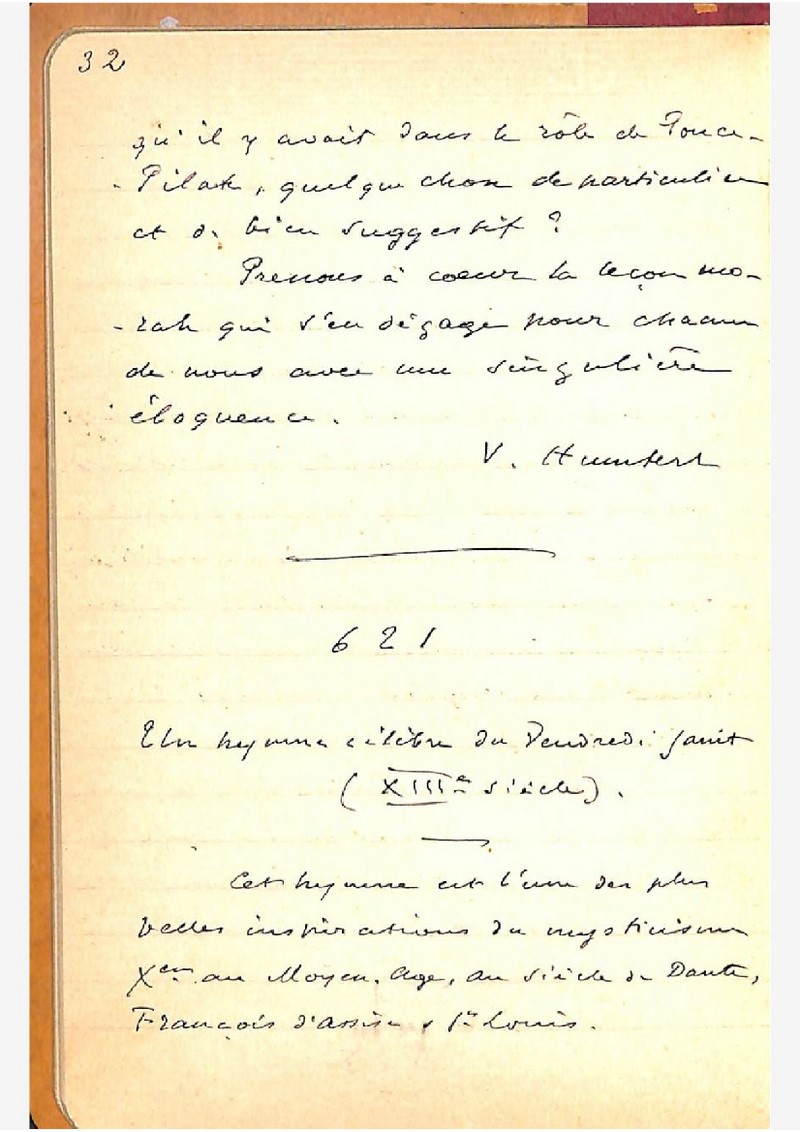 32
qu'il y avait dans le rôle de Ponce-
-Pilate, quelque chose de particulier
et de bien suggestif ?
Prenons à coeur la leçon mo-
-rale qui s'en dégage pour chacun
de nous avec une singulière
éloquence.
V. Humbert
621
Un hymne célèbre du Vendredi Saint
(XIIIe siècle).
Cet hymne est l'une des plus
belles inspirations du mysticisme
Xen au Moyen-Age, au siècle de Dante,
François d'Assise & St Louis.